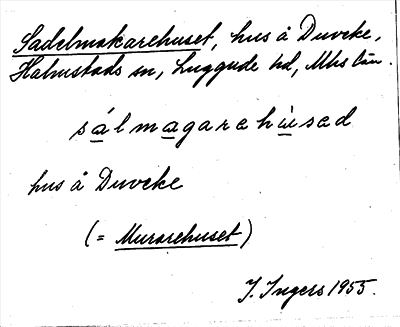 Sadelmakarehuset, hus å Duveke,
Halmstads sn, Luggude hd, Mhs län.
sálmagarehùsed
hus å Duveke
(= Murarehuset)
I. Ingers 1955.